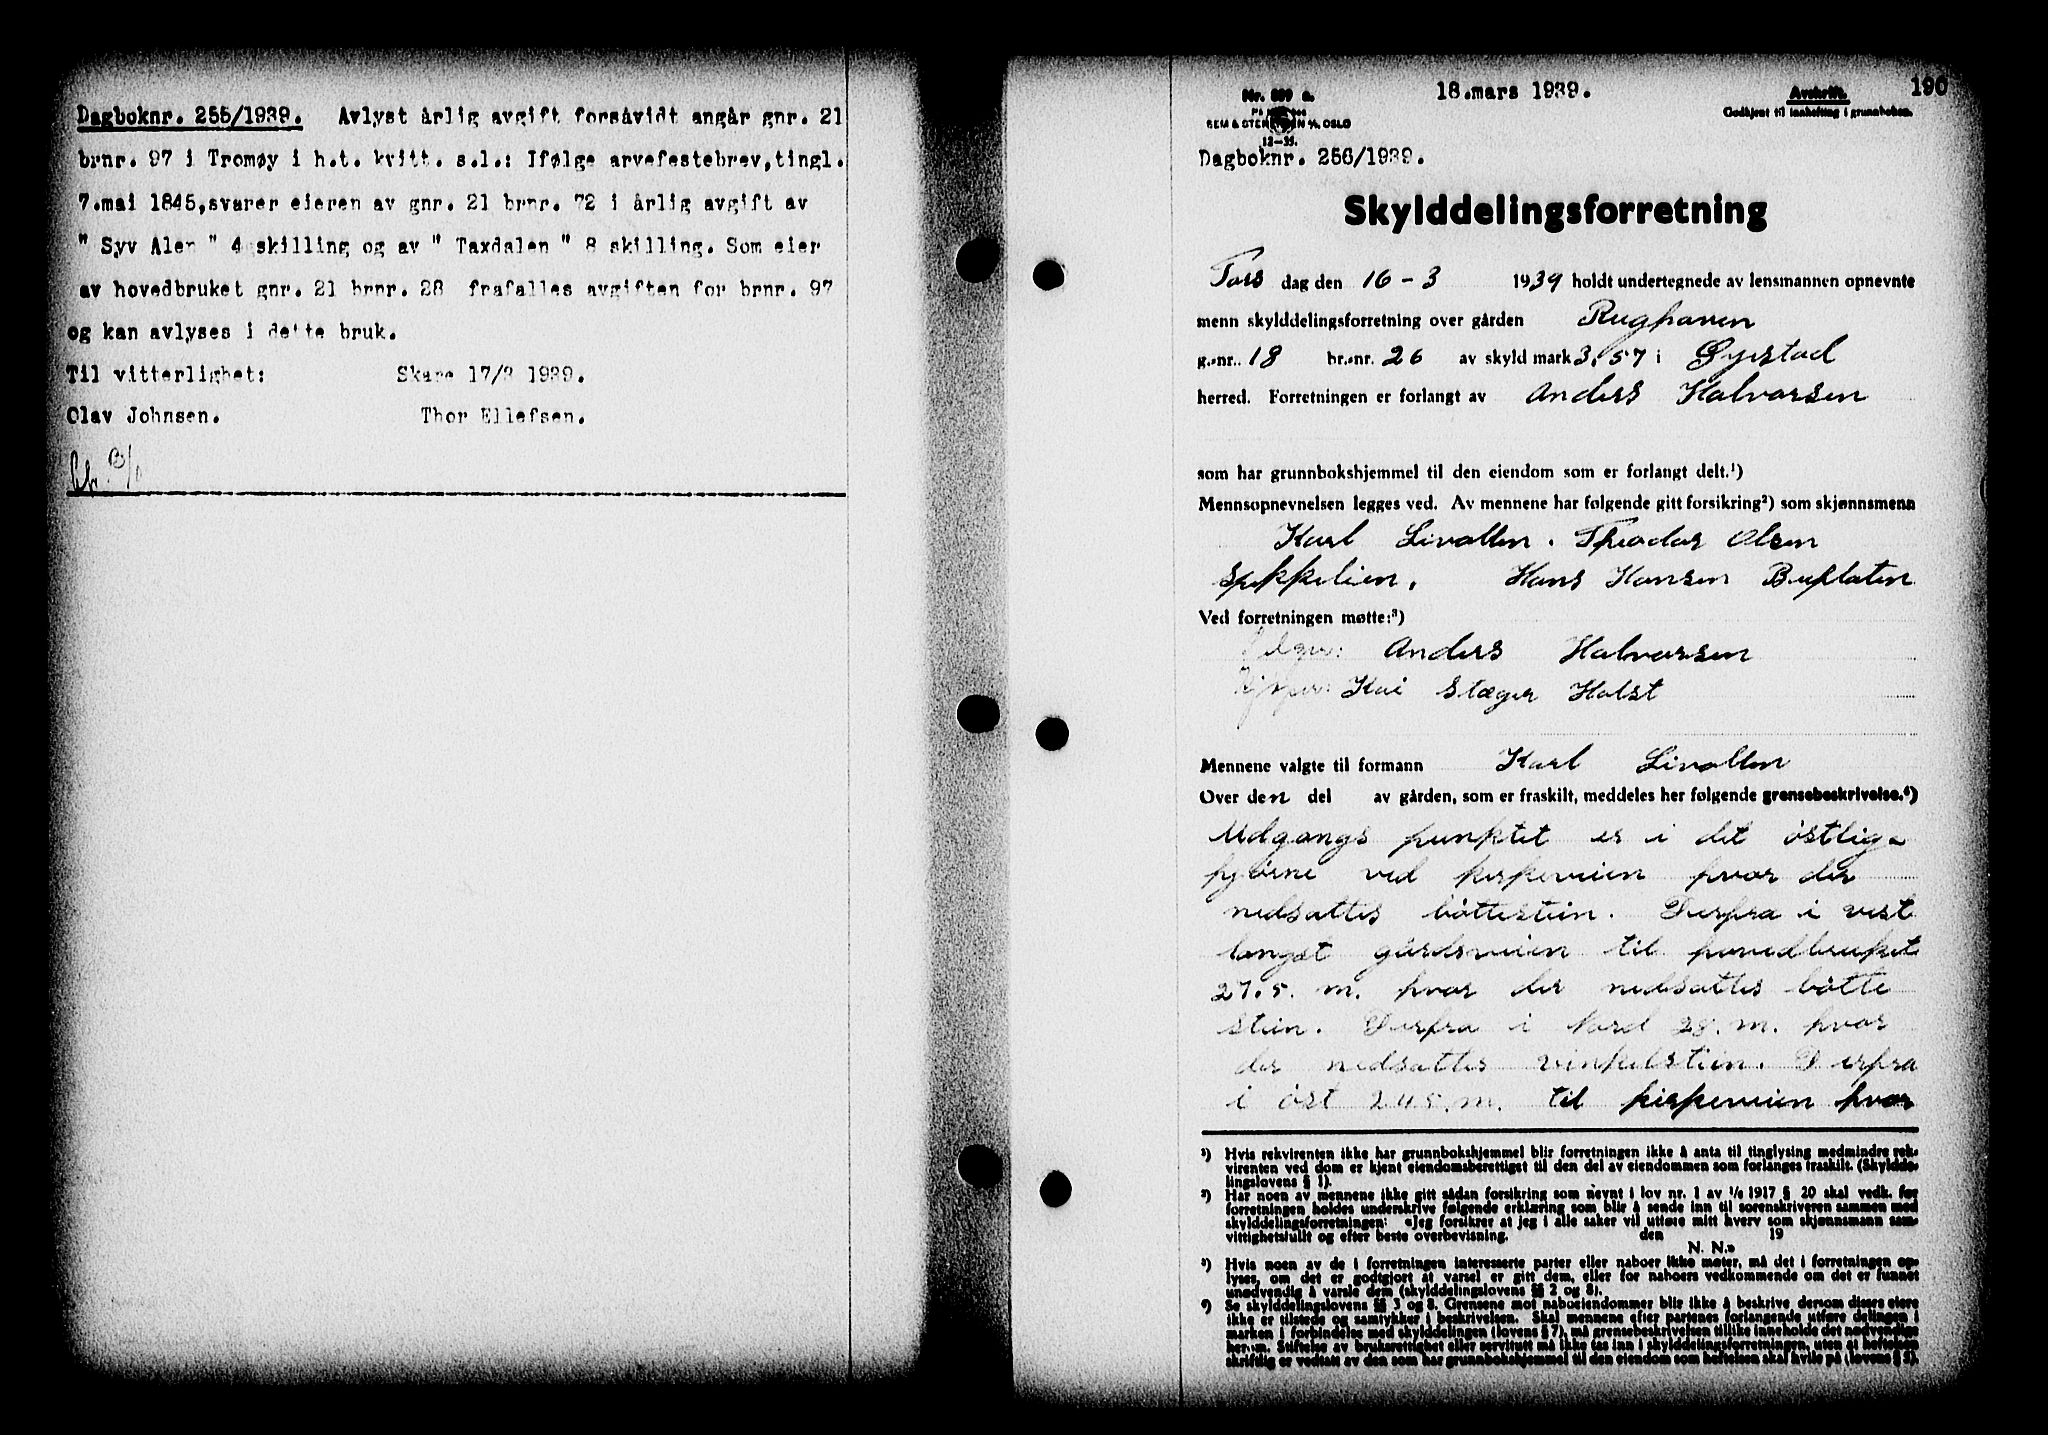 Dagboknr. 255/1939. Avlyst årlig avgift forsåvidt angår gnr. 21
brnr. 97 i Tromøy i h.t. kvitt. s.l.: Ifølge arvefestebrev, tingl.
7.mai 1845, svarer eieren av gnr. 21 brnr. 72 i årlig avgift av
" Syv Alen " 4 skilling og av " Taxdalen " 8 skilling. Som eier
av hovedbruket gnr. 21 brnr. 28 frafalles avgiften for brnr. 97
og kan avlyses i dette bruk.
Til vitterlighet: Skare 17/3 1939.
Olav Johnsen. Thor Ellefsen.
190
18.mars 1939.
Nr. 899 a.
Avskrift.
Godkjent til innhefting i grunnboken.
SEM & STENERSEN A/S, OSLO
12—35.
Dagboknr. 256/1939.
Skylddelingsforretning
Tors dag den 16 - 3 1939 holdt undertegnede av lensmannen opnevnte
menn skylddelingsforretning over gården Rughaven
g.-nr. 18 br.-nr. 26 av skyld mark 3,57 i Øyestad
herred. Forretningen er forlangt av Anders Halvorsen
som har grunnbokshjemmel til den eiendom som er forlangt delt.¹)
Mennsopnevnelsen legges ved. Av mennene har følgende gitt forsikring²) som skjønnsmenn
Karl Livollen. Theodor Olsen
Spekkelien. Hans Hansen Buflaten
Ved forretningen møtte:³)
Selger: Anders Halvorsen
Kjøper: Kai Stæger Holst
Mennene valgte til formann Karl Livollen
Over den del av gården, som er fraskilt, meddeles her følgende grensebeskrivelse.⁴)
Udgangs punktet er i det østlige
hjørne ved kirkeveien hvor der
nedsattes bøttestein. Derfra i vest
langst gårdsveien til hovedbruket
27.5. m. hvor der nedsattes bøtte
stein. Derfra i Nord 28. m. hvor
der nedsattes vinkelstein. Derfra
i øst 24.5. m. til kirkeveien hvor
¹) Hvis rekvirenten ikke har grunnbokshjemmel blir forretningen ikke å anta til tinglysing medmindre rek-
virenten ved dom er kjent eiendomsberettiget til den del av eiendommen som forlanges fraskilt. (Skyldde-
lingslovens § 1).
²) Har noen av mennene ikke gitt sådan forsikring som nevnt i lov nr. 1 av 1/6 1917 § 20 skal vedk. før
forretningen holdes underskrive følgende erklæring som blir å sende inn til sorenskriveren sammen med
skylddelingsforretningen: «Jeg forsikrer at jeg i alle saker vil utføre mitt hverv som skjønnsmann sam-
vittighetsfullt og efter beste overbevisning. den 19
N. N.»
³) Hvis noen av de i forretningen interesserte parter eller naboer ikke møter, må det i forretningen op-
lyses, om det er godtgjort at varsel er gitt dem, eller for naboers vedkommende om det er funnet
unødvendig å varsle dem (skylddelingslovens §§ 2 og 8).
⁴) Se skylddelingslovens §§ 3 og 8. Grensene mot naboeiendommer blir ikke å beskrive dersom disses eiere
ikke er tilstede og samtykker i beskrivelsen. Skal mennene efter partenes forlangende utføre delingen i
marken i forbindelse med skylddelingen (lovens § 7), må grensebeskrivelsen tillike inneholde det nødvendige
herom. Stiftelse av bruksrettighet eller servitutt må ikke tas inn i skylddelingsforretningen, uten at heftelsen
skriftlig er vedtatt av den som har grunnbokshjemmel til den eiendom som heftelsen skal hvile på (lovens § 5).